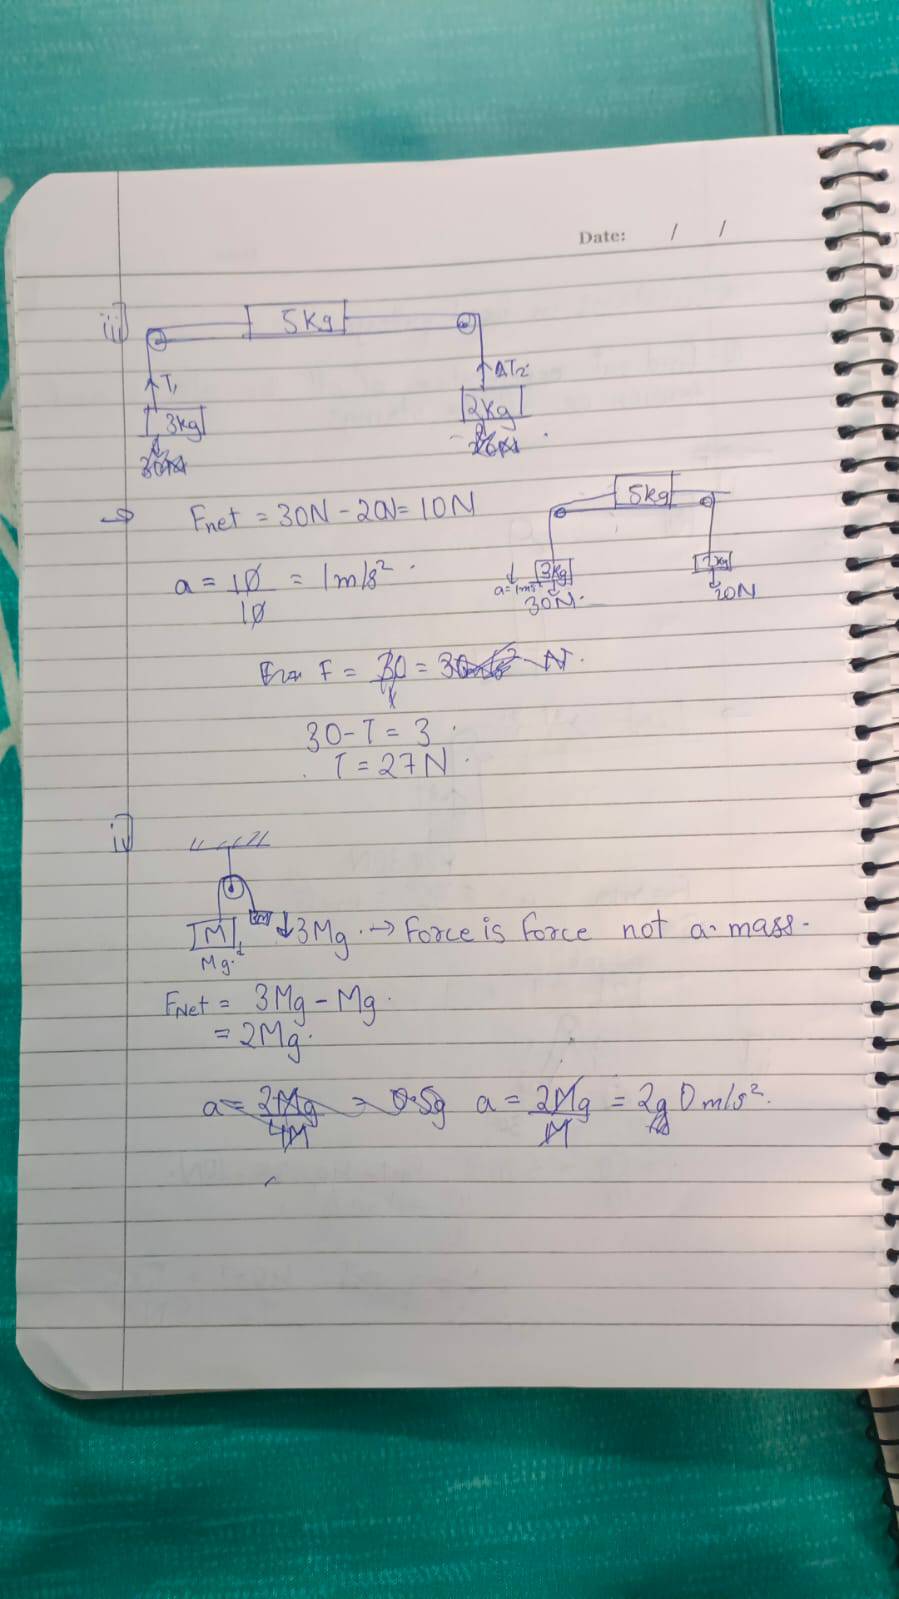 Date: / /
iii]
5Kg
T₁
T₂
3Kg
2Kg
Fnet = 30N - 20N = 10N
5kg
a = 10/10 = 1m/s²
3kg
a=1m/s²
30N
20N
F = 30 = 30 N
30 - T = 3
T = 27N
M
Mg
↓3Mg → Force is Force not a mass.
FNet = 3Mg - Mg
= 2Mg
a = 2Mg/4M = 0.5g a = 2Mg/M = 2g m/s².